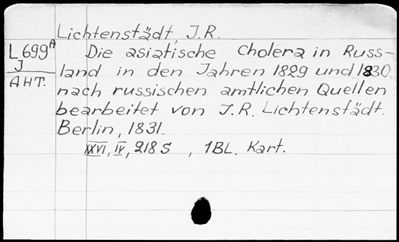 Lichtenstädt, J.R.
L699A Die asiatische Cholera in Russ-
J land in den Jahren 1829 und 1830
AHT. nach russischen amtlichen Quellen
bearbeitet von J.R. Lichtenstädt.
Berlin, 1831.
XXVI, IV, 218 S , 1BL. Kart.